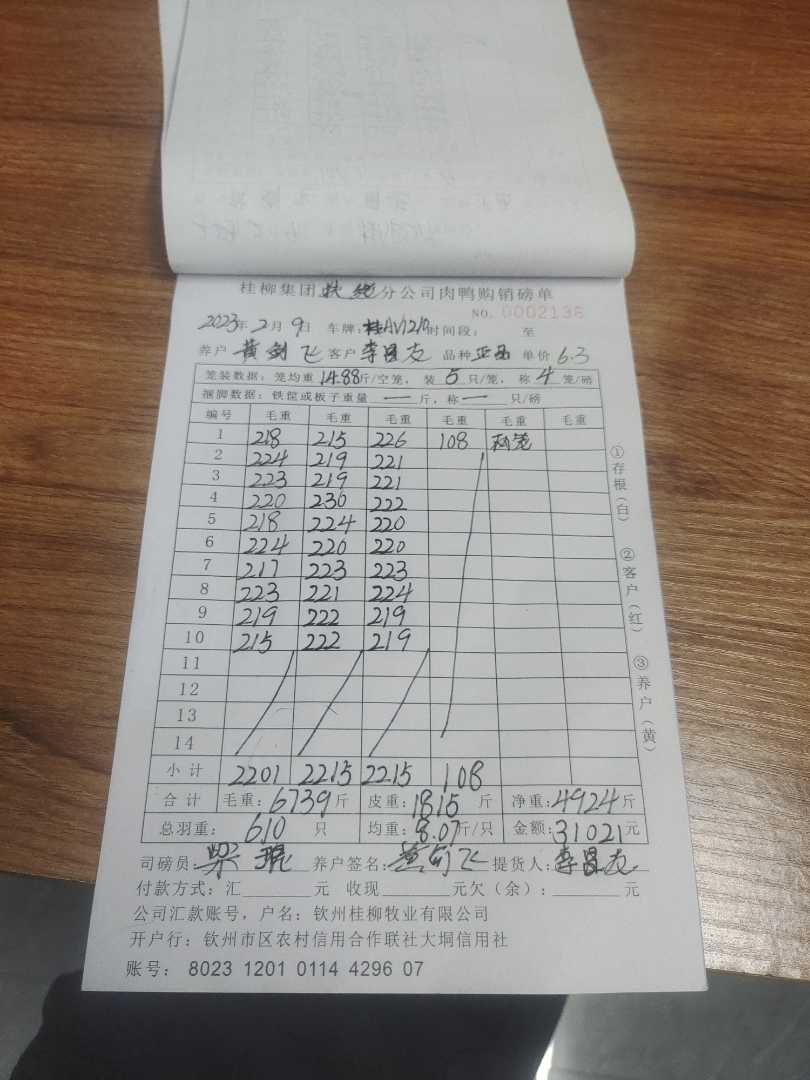 桂柳集团钦州分公司肉鸭购销磅单
NO. 0002136
2023年2月9日 车牌: 时间段: 至
养户 黄剑飞 客户 李昌友 品种 单价 6.3
笼装数据：笼均重 14.88 斤/空笼，装 5 只/笼，称 4 笼/磅
捆脚数据：铁筐或板子重量 一 斤，称 一 只/磅
编号 毛重 毛重 毛重 毛重 毛重 毛重
1 218 215 226 108
2 224 219 221
3 223 219 221
4 220 230 222
5 218 224 220
6 224 220 220
7 217 223 223
8 223 221 224
9 219 222 219
10 215 222 219
11
12
13
14
小计 2201 2215 2215 108
合计 毛重：6739斤 皮重：1815斤 净重：4924斤
总羽重：610只 均重：8.07斤/只 金额：31021元
司磅员：梁 养户签名：黄剑飞 提货人：李昌友
付款方式：汇 元 收现 元欠（余）： 元
公司汇款账号，户名：钦州桂柳牧业有限公司
开户行：钦州市区农村信用合作联社大垌信用社
账号：8023 1201 0114 4296 07
①存根（白）
②客户（红）
③养户（黄）